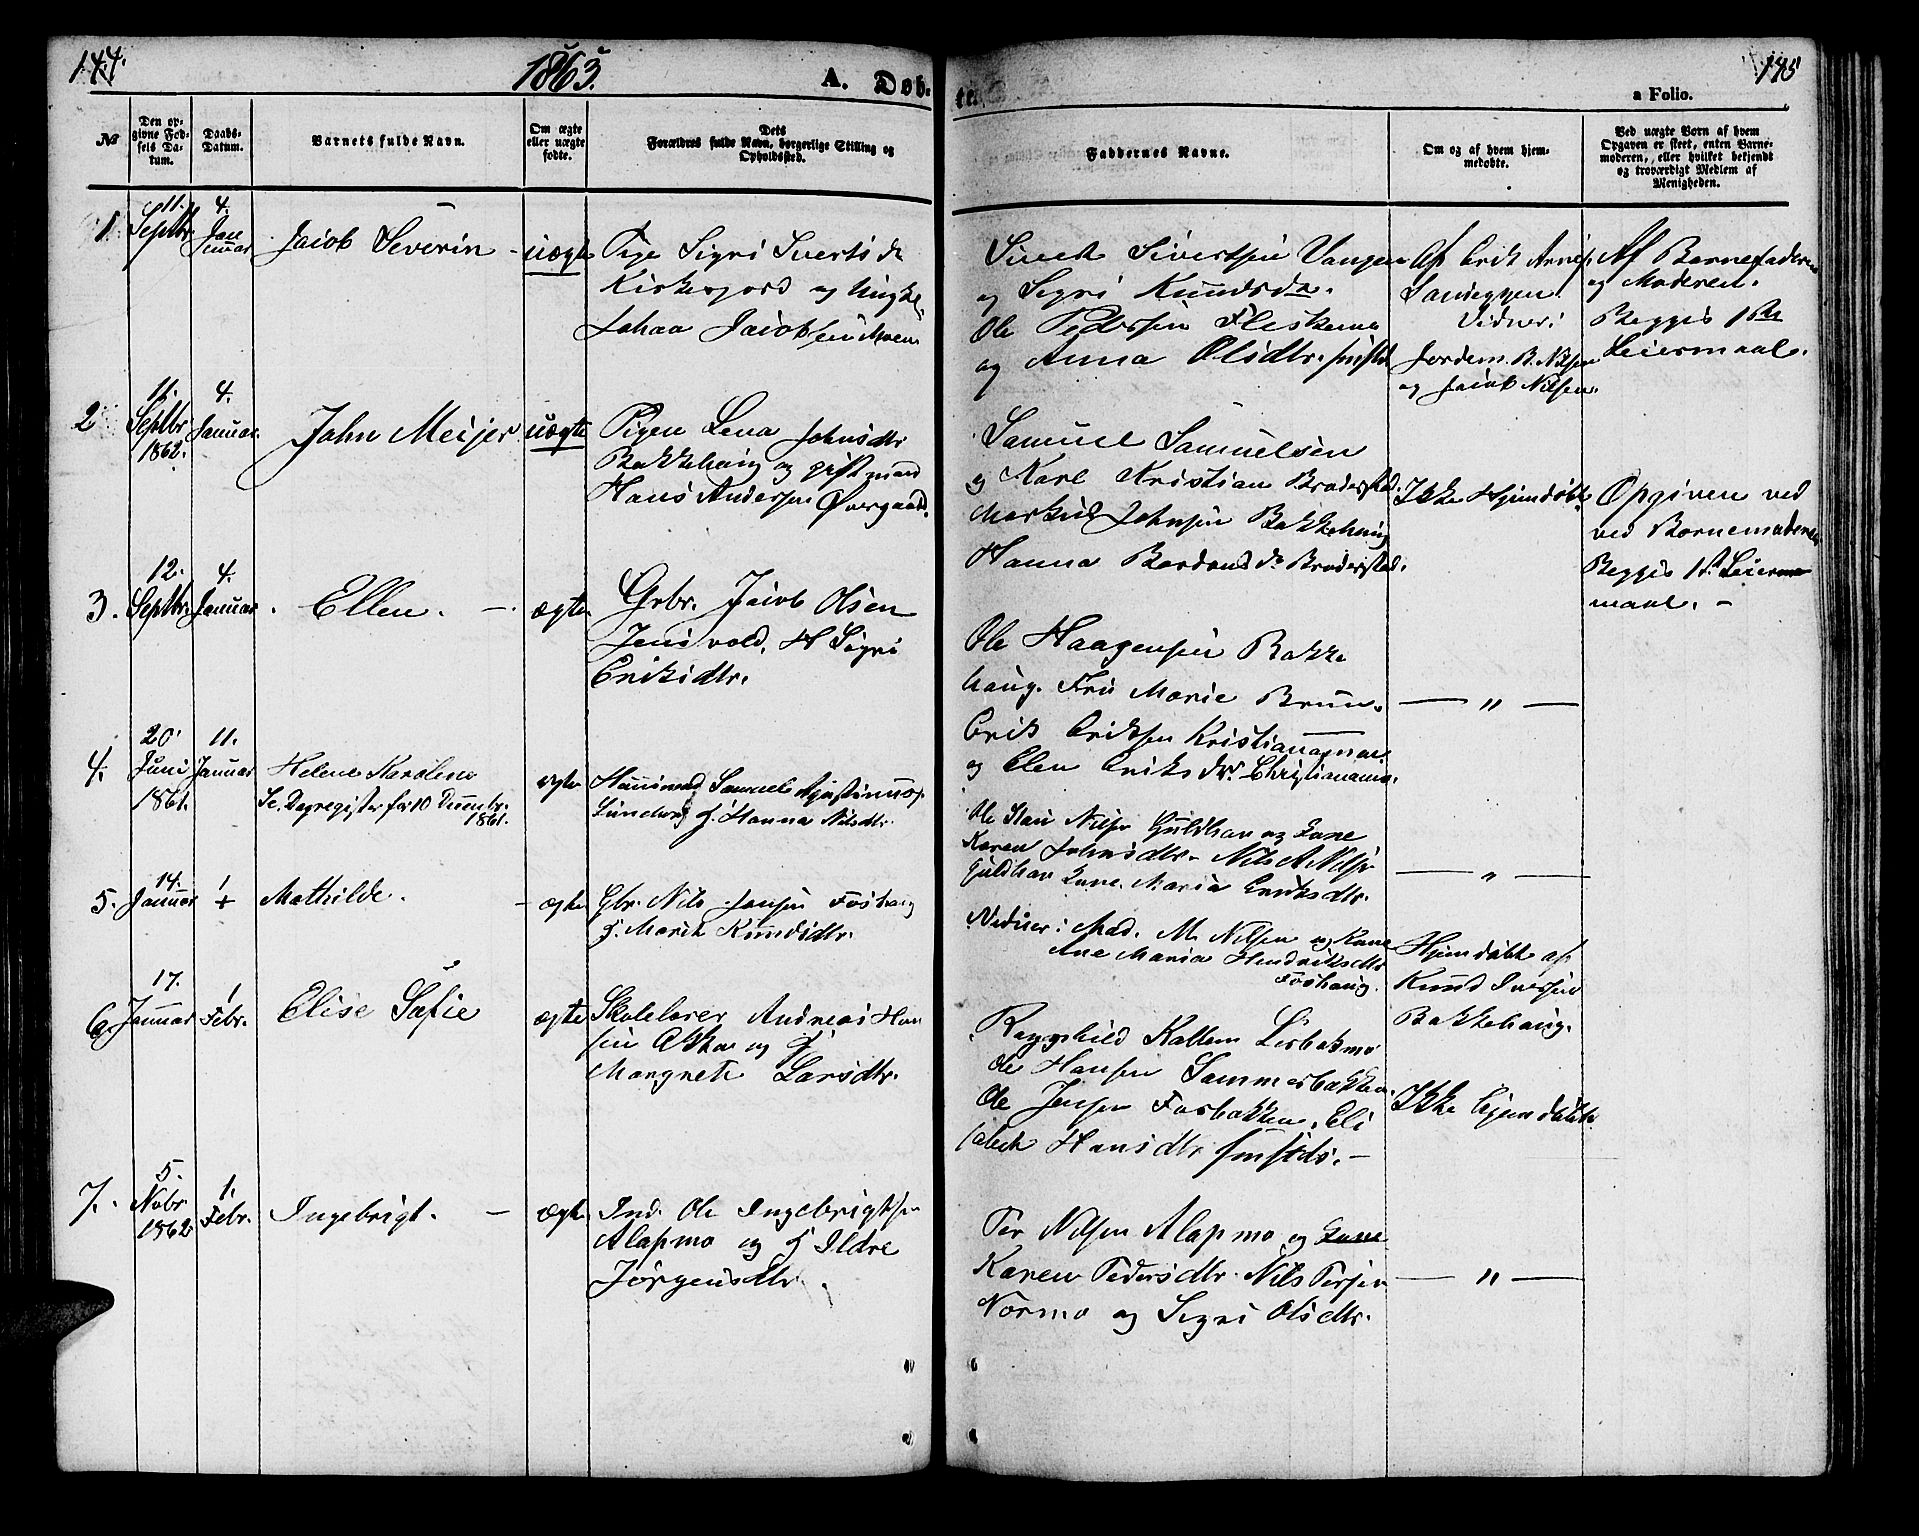 144.
1863.
A. Døb-
№
Den op-
givne Fød-
sels Da-
tum.
Daabs-
Datum.
Barnets fulde Navn.
Om ægte
eller uægte
fødte.
Dets
Forældres fulde Navn, borgerlige Stilling og
Opholdssted.
1
11.
Septbr
4.
Jan
uar
Jacob Severin -
uægte
Pige Sigri Sivertsdr
Kirkesjord og Ungk.
Johan Jacobsen Moen
2
11.
Septbr
1862.
4.
Januar.
John Meijer
uægte
Pigen Lena Johnsdtr
Bakkehaug og gift mand
Hans Andersen Øvergaard.
3.
12.
Septbr.
4.
Januar
Ellen. -
ægte
Grbr. Jacob Olsen
Jensvold. H Sigri
Eriksdtr.
4.
20.
Juni
1861.
11.
Januar
Helene Karoline
Se. Dagregister for 10 Decembr.
1861.
ægte
Huusmand Samuel
Lundberg H. Hanna Nilsdtr.
5.
14.
Januar
1
+
Mathilde.
- ægte
Gbr. Nils Jensen Foshaug
H. Marit Knudsdtr.
6.
17.
Januar
1
Febr.
Elise Sofie
ægte
Skolelærer Andreas Han
sen Akkar og H
Mangrete Larsdtr.
7.
5.
Nobr
1862
1.
Febr.
Ingebrigt. -
ægte
Ind. Ole Ingebrigtsen
Alapmo og H Ildre
Jørgensdtr.
145
te.
a Folio.
Faddernes Navne.
Om og af hvem hjem-
medøbte.
Ved uægte Born af hvem
Opgaven er skeet, enten Barne-
moderen, eller hvilket bekjendt
og troværdigt Medlem af
Menigheden.
Sivert Sivertsen Vangen
og Sigri Knudsdr.
Ole Pedersen Fleskemo
og Anna Olsdtr.
Af Erik Arnes.
Sandeggen
Vidner:
Jordem. B. Nilsen
og Jacob Nilsen.
Af Barnefaderen
og Moderen.
Begges 1ste
Leiermaal.
Samuel Samuelsen
og Karl Kristian Bradersted.
Markus Johnsen Bakkehaug
Hanna Bardonsdr Bradersted.
Ikke Hjemdøbt.
Opgiven ved
ved Barnemoderen
Begges 1ste Leierm
maal. -
Ole Haagensen Bakke
haug. Fru Marie Bruun.
Erik Eriksen Kristianamar.
og Elen Eriksdr Christianamr.
— " —
Ole Nilsen Guldhav og Kone
Karen Johnsdtr. Nils A Nilsen
Guldhav Kone Maria Eriksdtr.
— " —
Vidner: Mad. M. Nilsen og Kone
Ane Maria Hendriksdtr
Foshaug.
Hjemdøbt af
Knud Iversen
Bakkehaug.
Ragnhild Kallem
Ole Hansen Sommerbakken.
Ole Jensen Fosbakken. Eli
sabeth Hansdtr
Ikke hjemdøbt.
Per Nilsen Alapmo og Kone
Karen Pedersdtr. Nils Persen
Normo og Sigri Olsdtr.
— " —